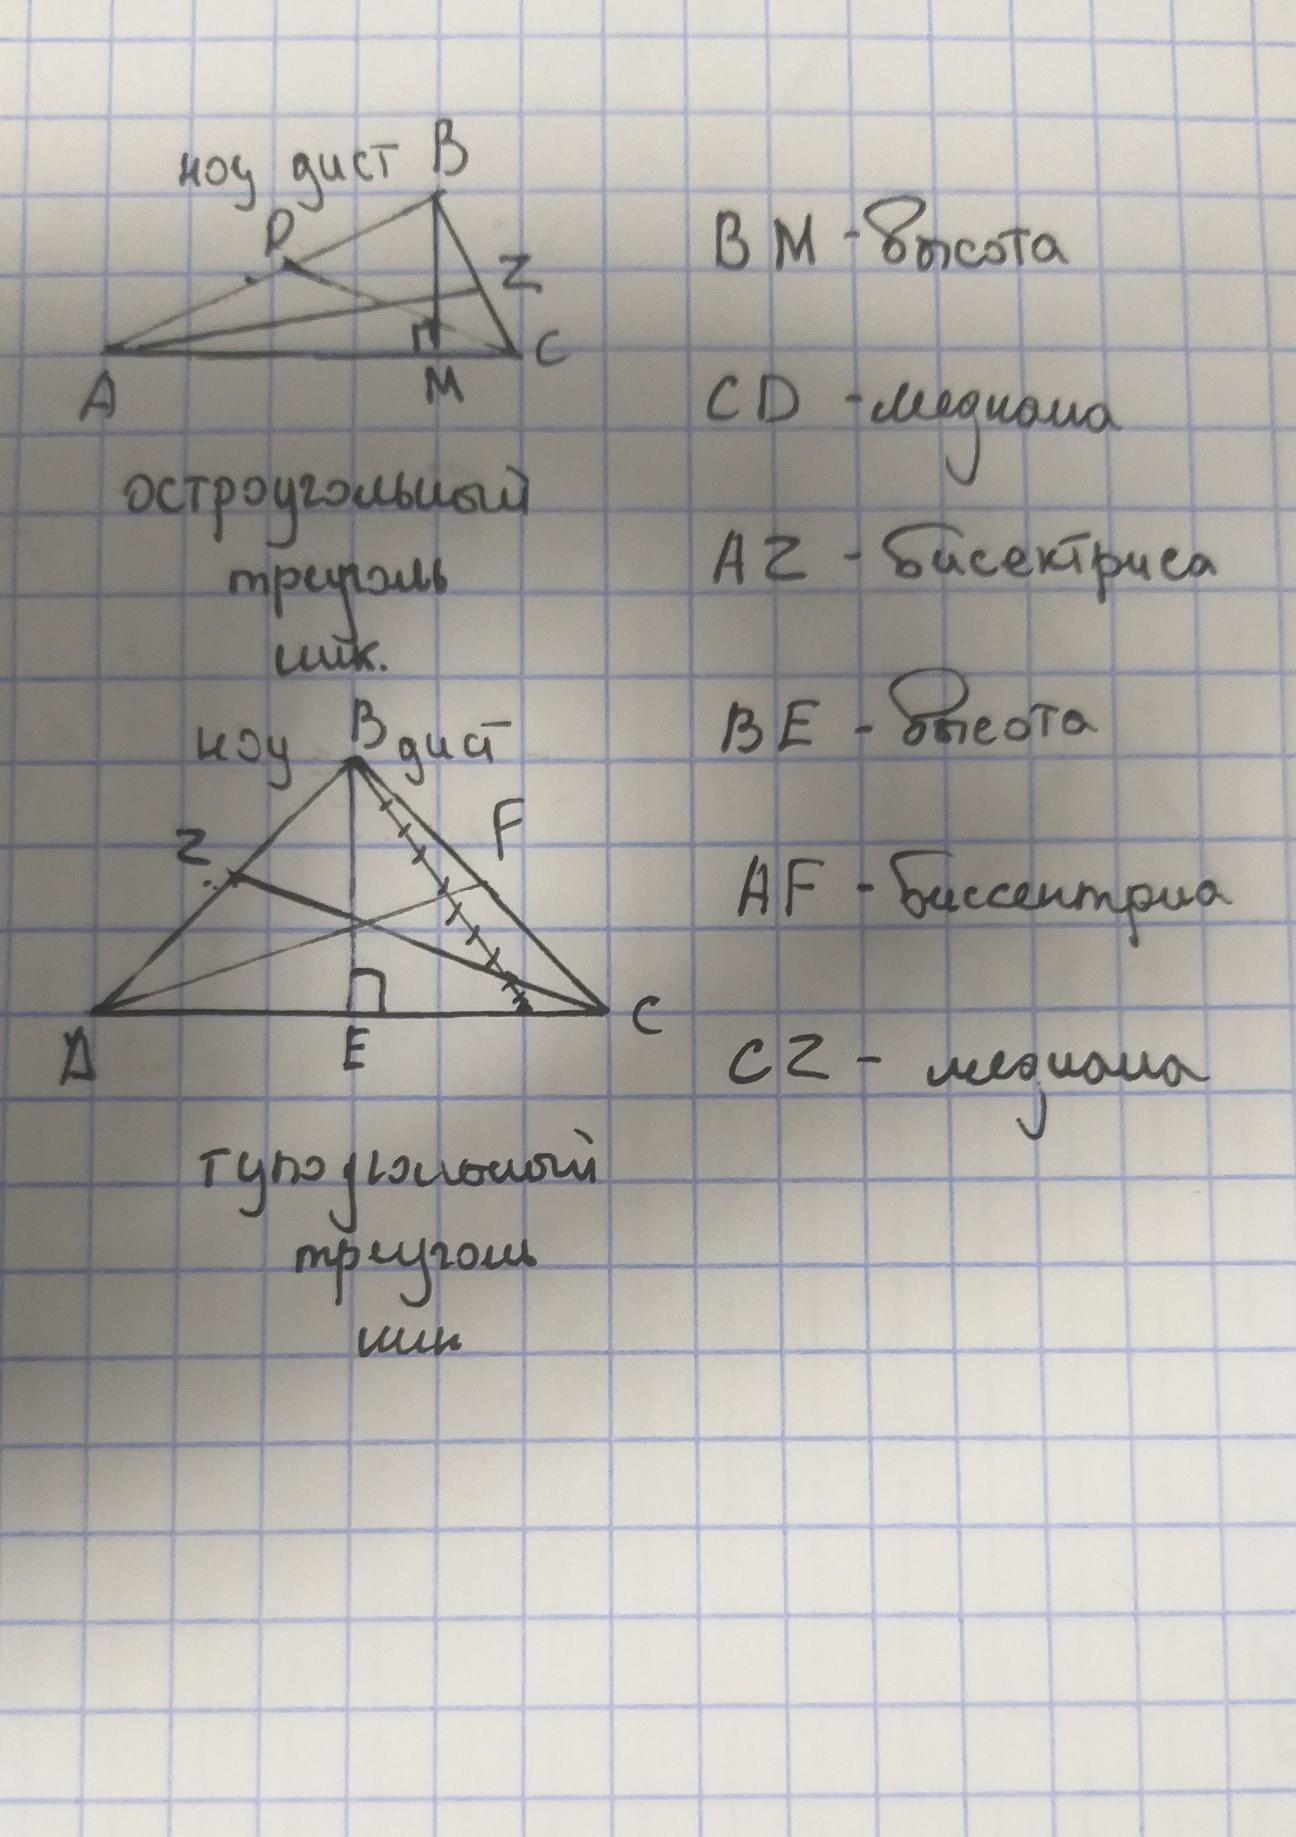 ноу дист B
D
Z
A
M
C
остроугольный
треуголь
ник.
BM - высота
CD - медиана
AZ - бисектриса
ноу B дист
Z
F
A
E
C
тупоугольный
треуголь
ник
BE - высота
AF - биссектриа
CZ - медиана